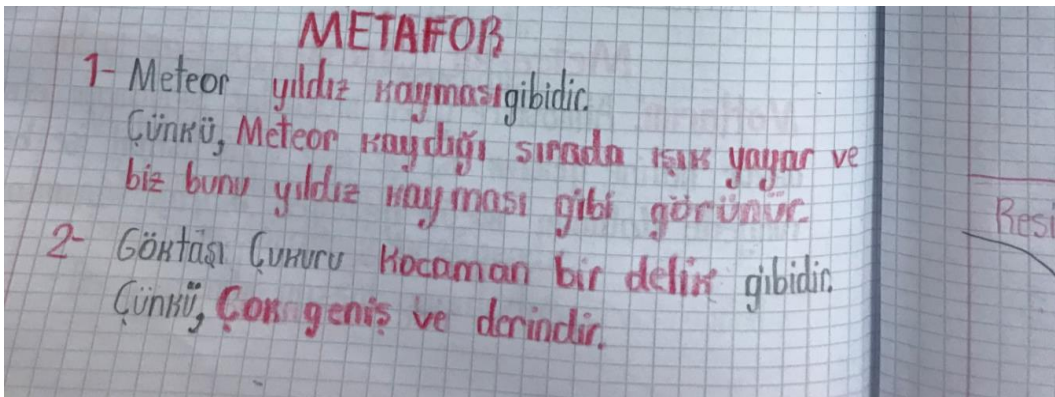 METAFOR
1- Meteor yıldız kayması gibidir.
Çünkü, Meteor kaydığı sırada ışık yayar ve
biz bunu yıldız kayması gibi görünür.
2- Göktaşı Çukuru Kocaman bir delik gibidir.
Çünkü, Çok geniş ve derindir.
Resi